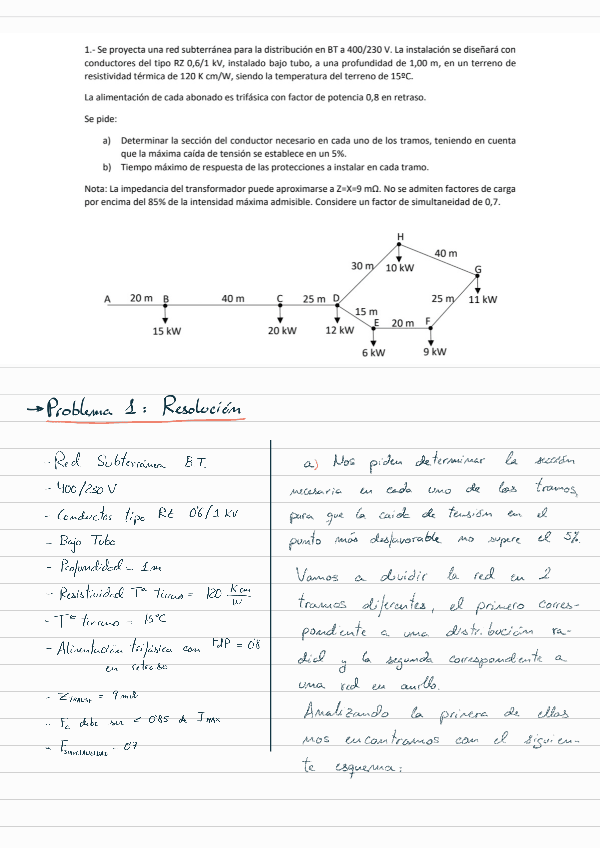 1.- Se proyecta una red subterránea para la distribución en BT a 400/230 V. La instalación se diseñará con
conductores del tipo RZ 0,6/1 kV, instalado bajo tubo, a una profundidad de 1,00 m, en un terreno de
resistividad térmica de 120 K cm/W, siendo la temperatura del terreno de 15ºC.
La alimentación de cada abonado es trifásica con factor de potencia 0,8 en retraso.
Se pide:
a) Determinar la sección del conductor necesario en cada uno de los tramos, teniendo en cuenta
que la máxima caída de tensión se establece en un 5%.
b) Tiempo máximo de respuesta de las protecciones a instalar en cada tramo.
Nota: La impedancia del transformador puede aproximarse a Z=X=9 mΩ. No se admiten factores de carga
por encima del 85% de la intensidad máxima admisible. Considere un factor de simultaneidad de 0,7.
H
40 m
30 m 10 kW
G
A 20 m B 40 m C 25 m D
25 m 11 kW
15 m
E 20 m F
15 kW 20 kW 12 kW
6 kW 9 kW
→ Problema 1: Resolución
- Red Subterránea BT.
- 400/230 V
- Conductos tipo RZ 0'6/1 kV
- Bajo Tubo
- Profundidad = 1m
- Resistividad Tª terreno = 120 K cm/W
- Tª terreno = 15ºC
- Alimentación trifásica con FdP = 0'8
en retraso
- Z = 9 mΩ
- Fc debe ser < 0'85 de Imax
- F simultaneidad = 0'7
a) Nos piden determinar la sección
necesaria en cada uno de los tramos,
para que la caída de tensión en el
punto más desfavorable no supere el 5%.
Vamos a dividir la red en 2
tramos diferentes, el primero corres-
pondiente a una distribución ra-
dial y la segunda correspondiente a
una red en anillo.
Analizando la primera de ellas
nos encontramos con el siguien-
te esquema: